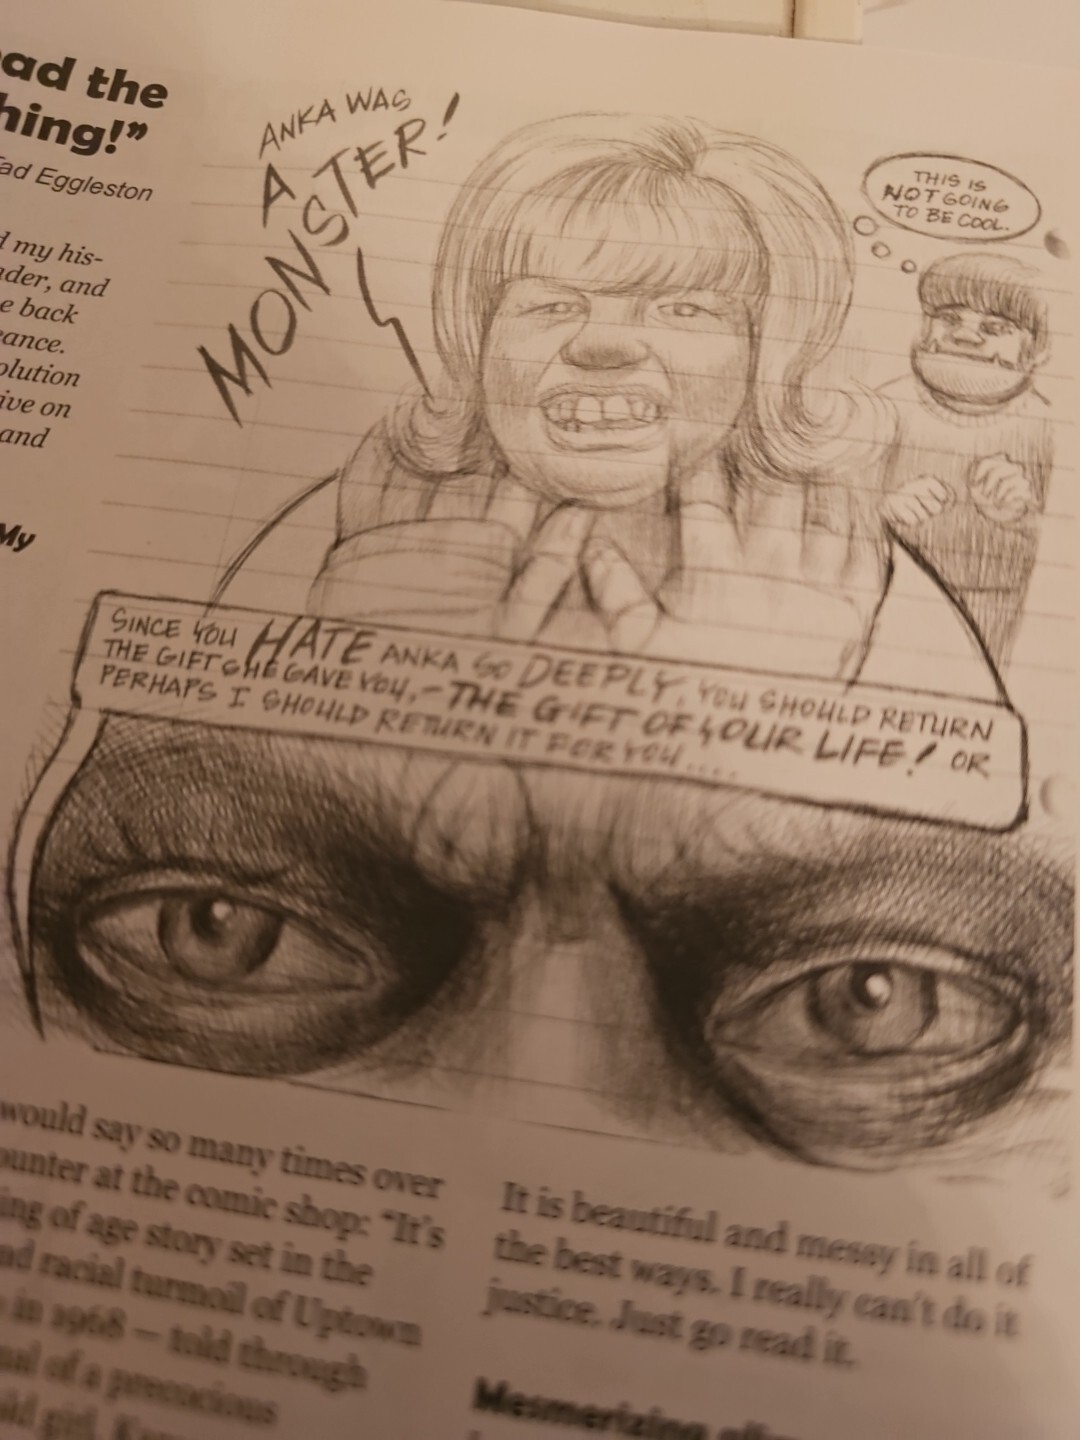 ad the
hing!"
ad Eggleston
d my his-
nder, and
e back
eance.
olution
ive on
and
My
ANKA WAS
A
MONSTER!
THIS IS
NOT GOING
TO BE COOL.
SINCE YOU HATE ANKA SO DEEPLY, YOU SHOULD RETURN
THE GIFT SHE GAVE YOU,- THE GIFT OF YOUR LIFE! OR
PERHAPS I SHOULD RETURN IT FOR YOU....
would say so many times over
ounter at the comic shop: "It's
ing of age story set in the
nd racial turmoil of Uptown
in 1968 — told through
nal of a precocious
old girl.
It is beautiful and messy in all of
the best ways. I really can't do it
justice. Just go read it.
Mesmerizing